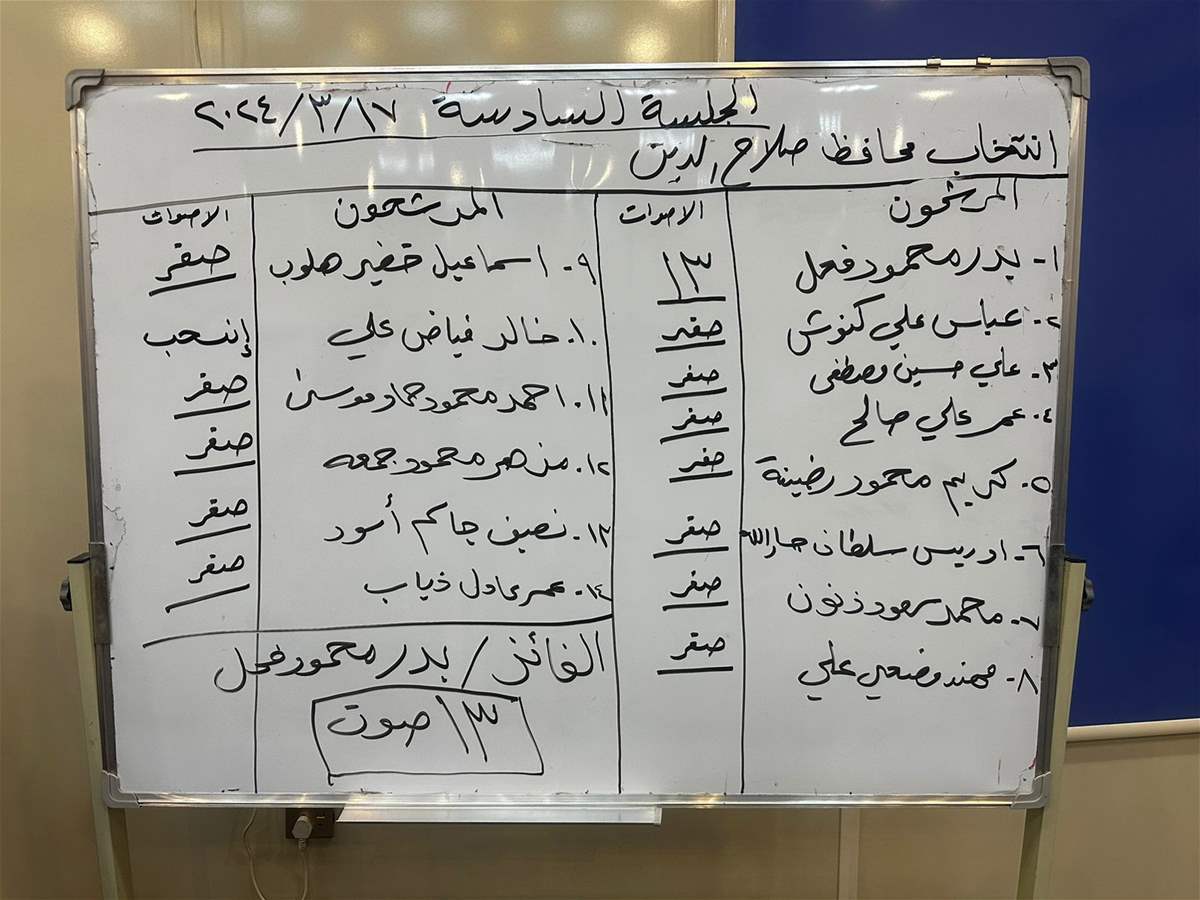 الجلسة السادسة ٢٠٢٤/٣/١٧
انتخاب محافظ صلاح الدين
المرشحون الاصوات
١- بدر محمود فحل ١٣
٢- عباس علي كنوش صفر
٣- علي حسين مصطفى صفر
٤- عمر علي صالح صفر
٥- كريم محمود رضينة صفر
٦- ادريس سلطان صفر
٧- محمد سعود ذنون صفر
٨- مهند ضعي علي صفر
المرشحون الاصوات
٩- اسماعيل خضير هلوب صفر
١٠- خالد فياض علي إنسحب
١١- احمد محمود حماد موسى صفر
١٢- محمود جمعه صفر
١٣- نصيف جاكم أسود صفر
١٤- عمر عادل ذياب صفر
الفائز / بدر محمود فحل
١٣ صوت